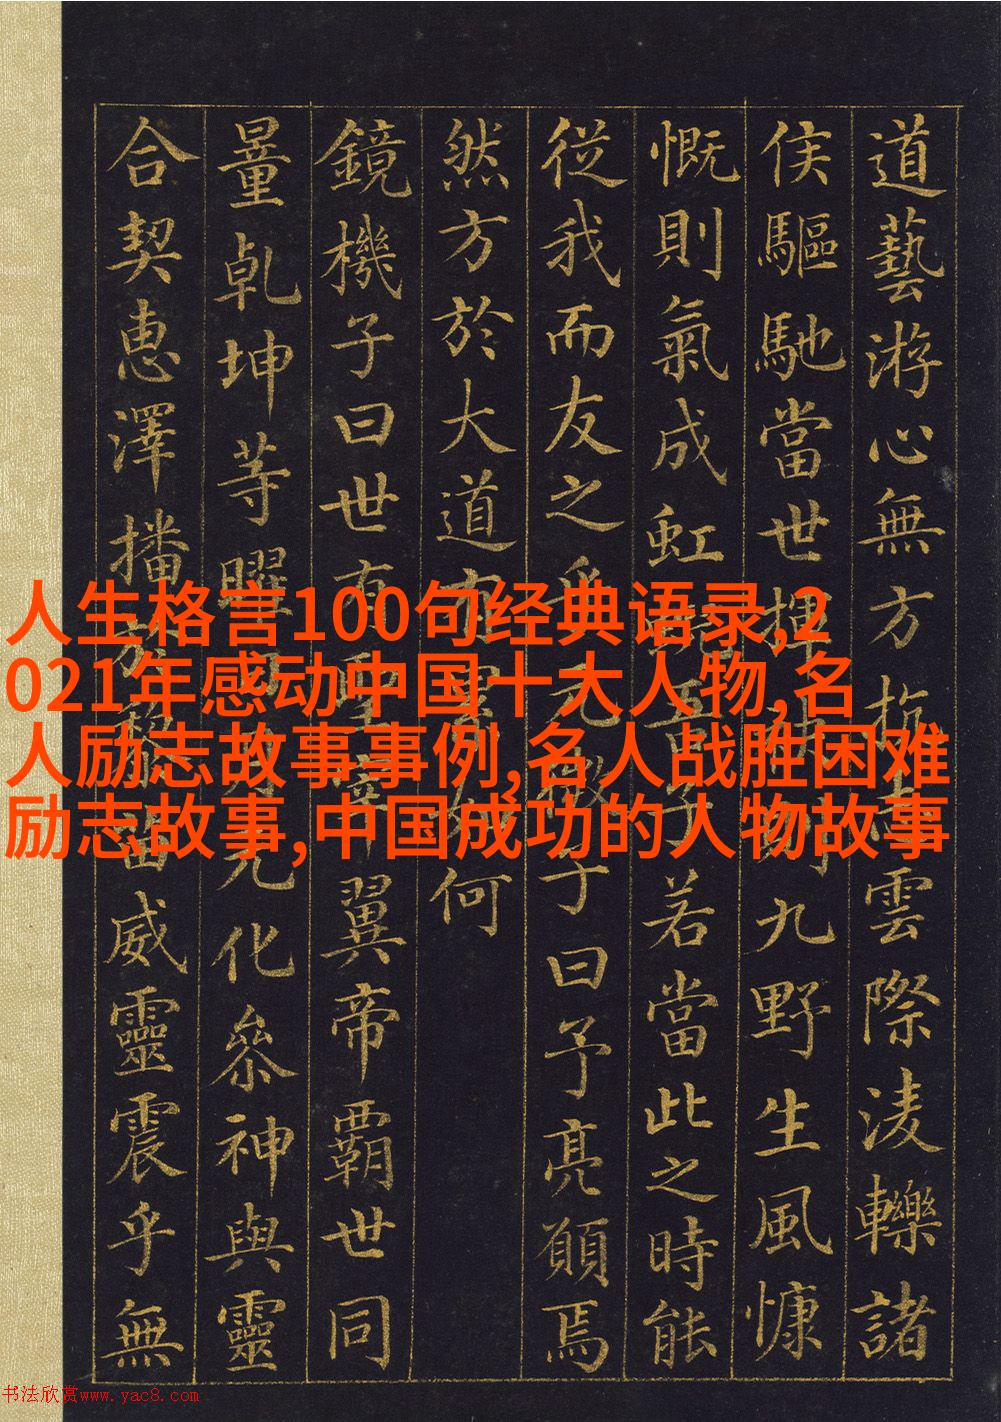 人生格言100句经典语录,2
021年感动中国十大人物,名
人励志故事事例,名人战胜困难
励志故事,中国成功的人物故事
道藝游心無方抗雲際淩轢諸
侯驅馳當世揮九野生風慷
慨則氣成虹吾子若當此之時能
從我而友之乎元子曰予亮願焉
然方於大道有累如何
鏡機子曰世有聖翼帝霸世同
量乾坤等曜月元化參神與靈
合契惠澤播於威靈震乎無
书法欣赏www.yac8.com